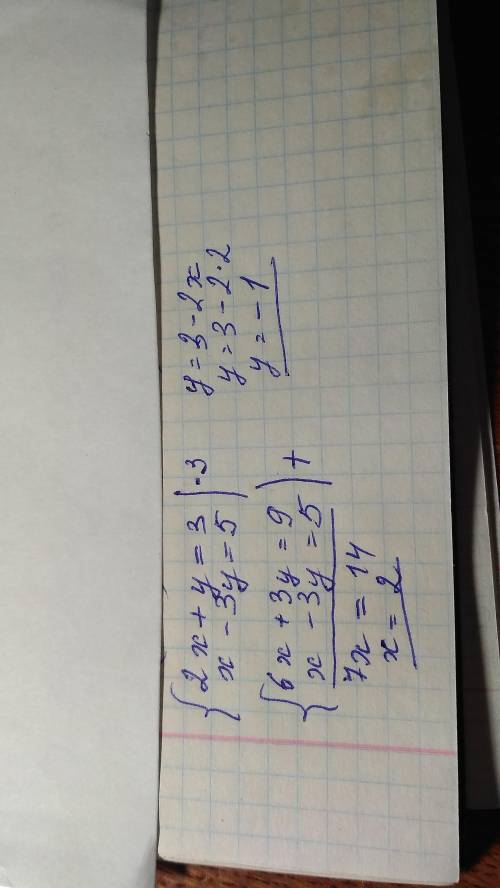 {2x + y = 3 | ·3
x - 3y = 5
{6x + 3y = 9 ) +
x - 3y = 5
7x = 14
x = 2
y = 3 - 2x
y = 3 - 2·2
y = -1